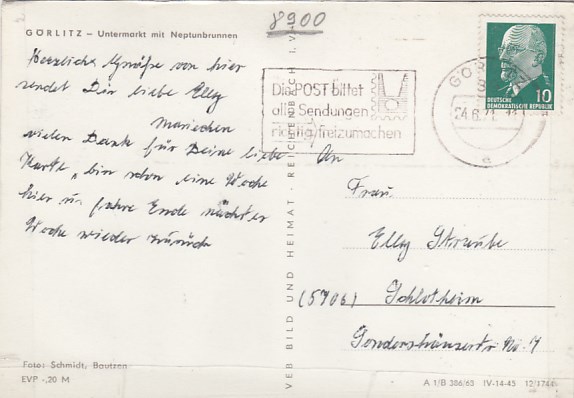 8900
GÖRLITZ – Untermarkt mit Neptunbrunnen
Herzliche Grüße von hier
sendet Dir liebe Elly
Mariechen
vielen Dank für Deine liebe
Karte, bin schon eine Woche
hier u. fahre Ende nächster
Woche wieder zurück
Foto: Schmidt, Bautzen
EVP -,20 M
VEB BILD UND HEIMAT · REICHENBACH I. V.
Die POST bittet
alle Sendungen
richtig freizumachen
24.6.
e
DEUTSCHE
DEMOKRATISCHE REPUBLIK
10
An
Frau
Elly Straube
(5706) Schlotheim
Sondershäuserstr. No. 4
A 1/B 386/63 IV-14-45 12/1744